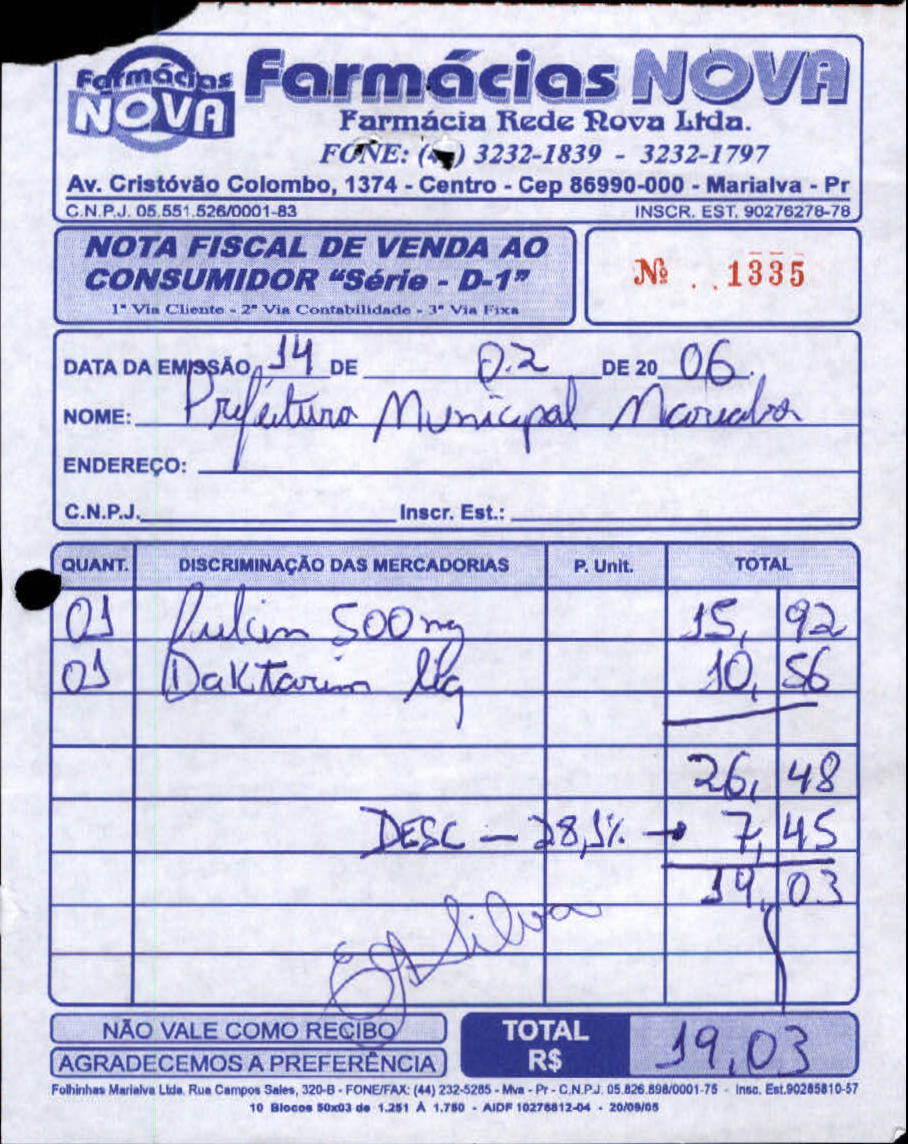 Farmácias NOVA
Farmácias NOVA
Farmácia Rede Nova Ltda.
FONE: ( ) 3232-1839 - 3232-1797
Av. Cristóvão Colombo, 1374 - Centro - Cep 86990-000 - Marialva - Pr
C.N.P.J. 05.551.526/0001-83 INSCR. EST. 90276278-78
NOTA FISCAL DE VENDA AO
CONSUMIDOR "Série - D-1"
1ª Via Cliente - 2ª Via Contabilidade - 3ª Via Fixa
Nº 1335
DATA DA EMISSÃO 14 DE 02 DE 20 06
NOME: Prefeitura Municipal Marialva
ENDEREÇO:
C.N.P.J. Inscr. Est.:
QUANT. DISCRIMINAÇÃO DAS MERCADORIAS P. Unit. TOTAL
01 500mg 15,92
01 Daktarin liq 10,56
26,48
DESC - 28,1% → 7,45
19,03
Silva
NÃO VALE COMO RECIBO
AGRADECEMOS A PREFERÊNCIA
TOTAL R$ 19,03
Folhinhas Marialva Ltda. Rua Campos Sales, 320-B - FONE/FAX: (44) 232-5285 - Mva - Pr - C.N.P.J. 05.826.898/0001-75 - Insc. Est.90285810-57
10 Blocos 50x03 de 1.251 À 1.750 - AIDF 10276812-04 - 20/09/05